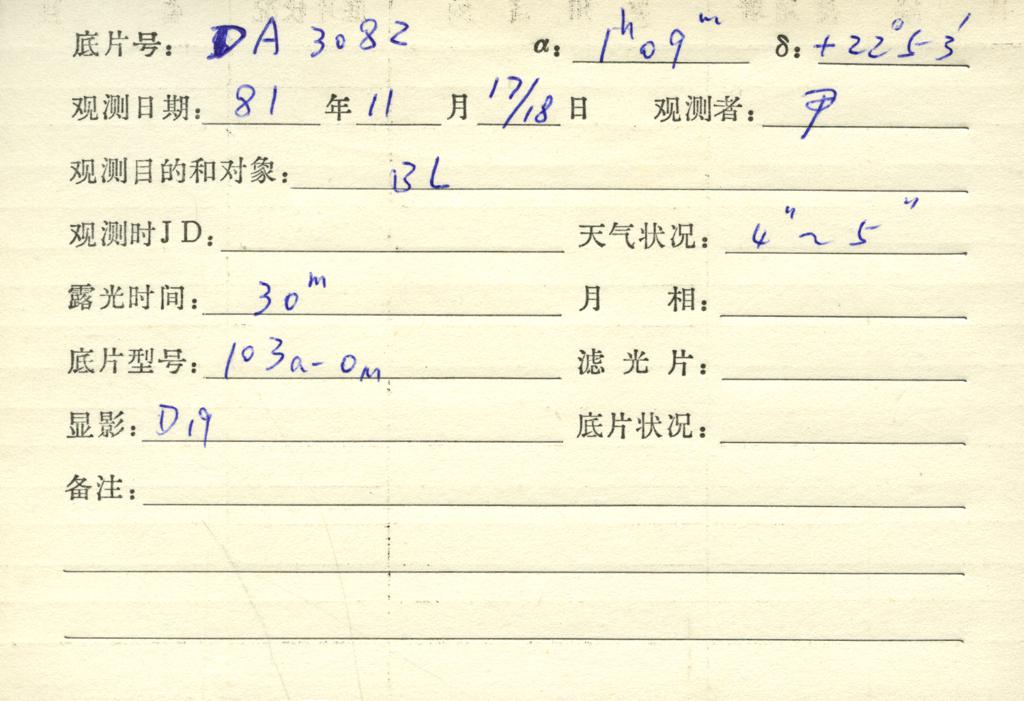 底片号: DA 3082 α: 1ʰ09ᵐ δ: +22°53′
观测日期: 81 年 11 月 17/18 日 观测者:
观测目的和对象: BL
观测时JD: 天气状况: 4″~5″
露光时间: 30ᵐ 月 相:
底片型号: 103a-Om 滤光片:
显影: D19 底片状况:
备注: